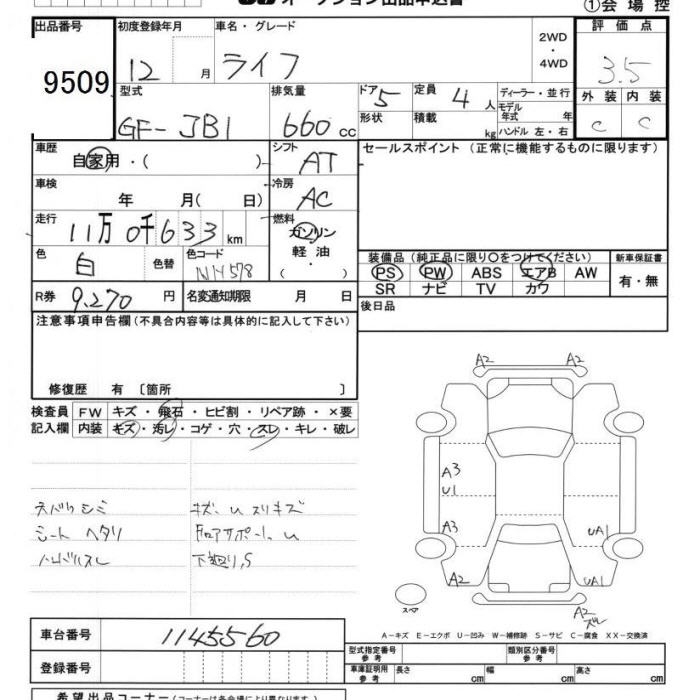 オークション出品申込書 ①会場控
出品番号 初度登録年月 車名・グレード 2WD・4WD 評価点
9509 12 月 ライフ 3.5
型式 排気量 ドア 5 定員 4 人 ディーラー・並行 外装 内装
GF-JB1 660 cc 形状 積載 kg モデル年式 年 C C
ハンドル 左・右
車歴 自家用・( ) シフト AT セールスポイント (正常に機能するものに限ります)
車検 年 月( 日) 冷房 AC
走行 11万0千633 km 燃料 ガソリン 軽油・( )
色 白 色替 色コード NH578 装備品 (純正品に限り○をつけてください) 新車保証書
PS PW ABS エアB AW 有・無
SR ナビ TV カワ
R券 9,270 円 名変通知期限 月 日 後日品
注意事項申告欄 (不具合内容等は具体的に記入して下さい)
修復歴 有 〔箇所 〕
検査員 FW キズ・飛石・ヒビ割・リペア跡・×要
記入欄 内装 キズ・汚レ・コゲ・穴・スレ・キレ・破レ
A2 A2
A3
U1
A3 UA1
A2 UA1
スペア A2
ズレ
シート ヘタリ
下廻り,S
A-キズ E-エクボ U-凹み W-補修跡 S-サビ C-腐食 XX-交換済
車台番号 1145560 型式指定番号 参考 類別区分番号 参考
登録番号 車庫証明用 参考 長さ cm 幅 cm 高さ cm
希望出品コーナー